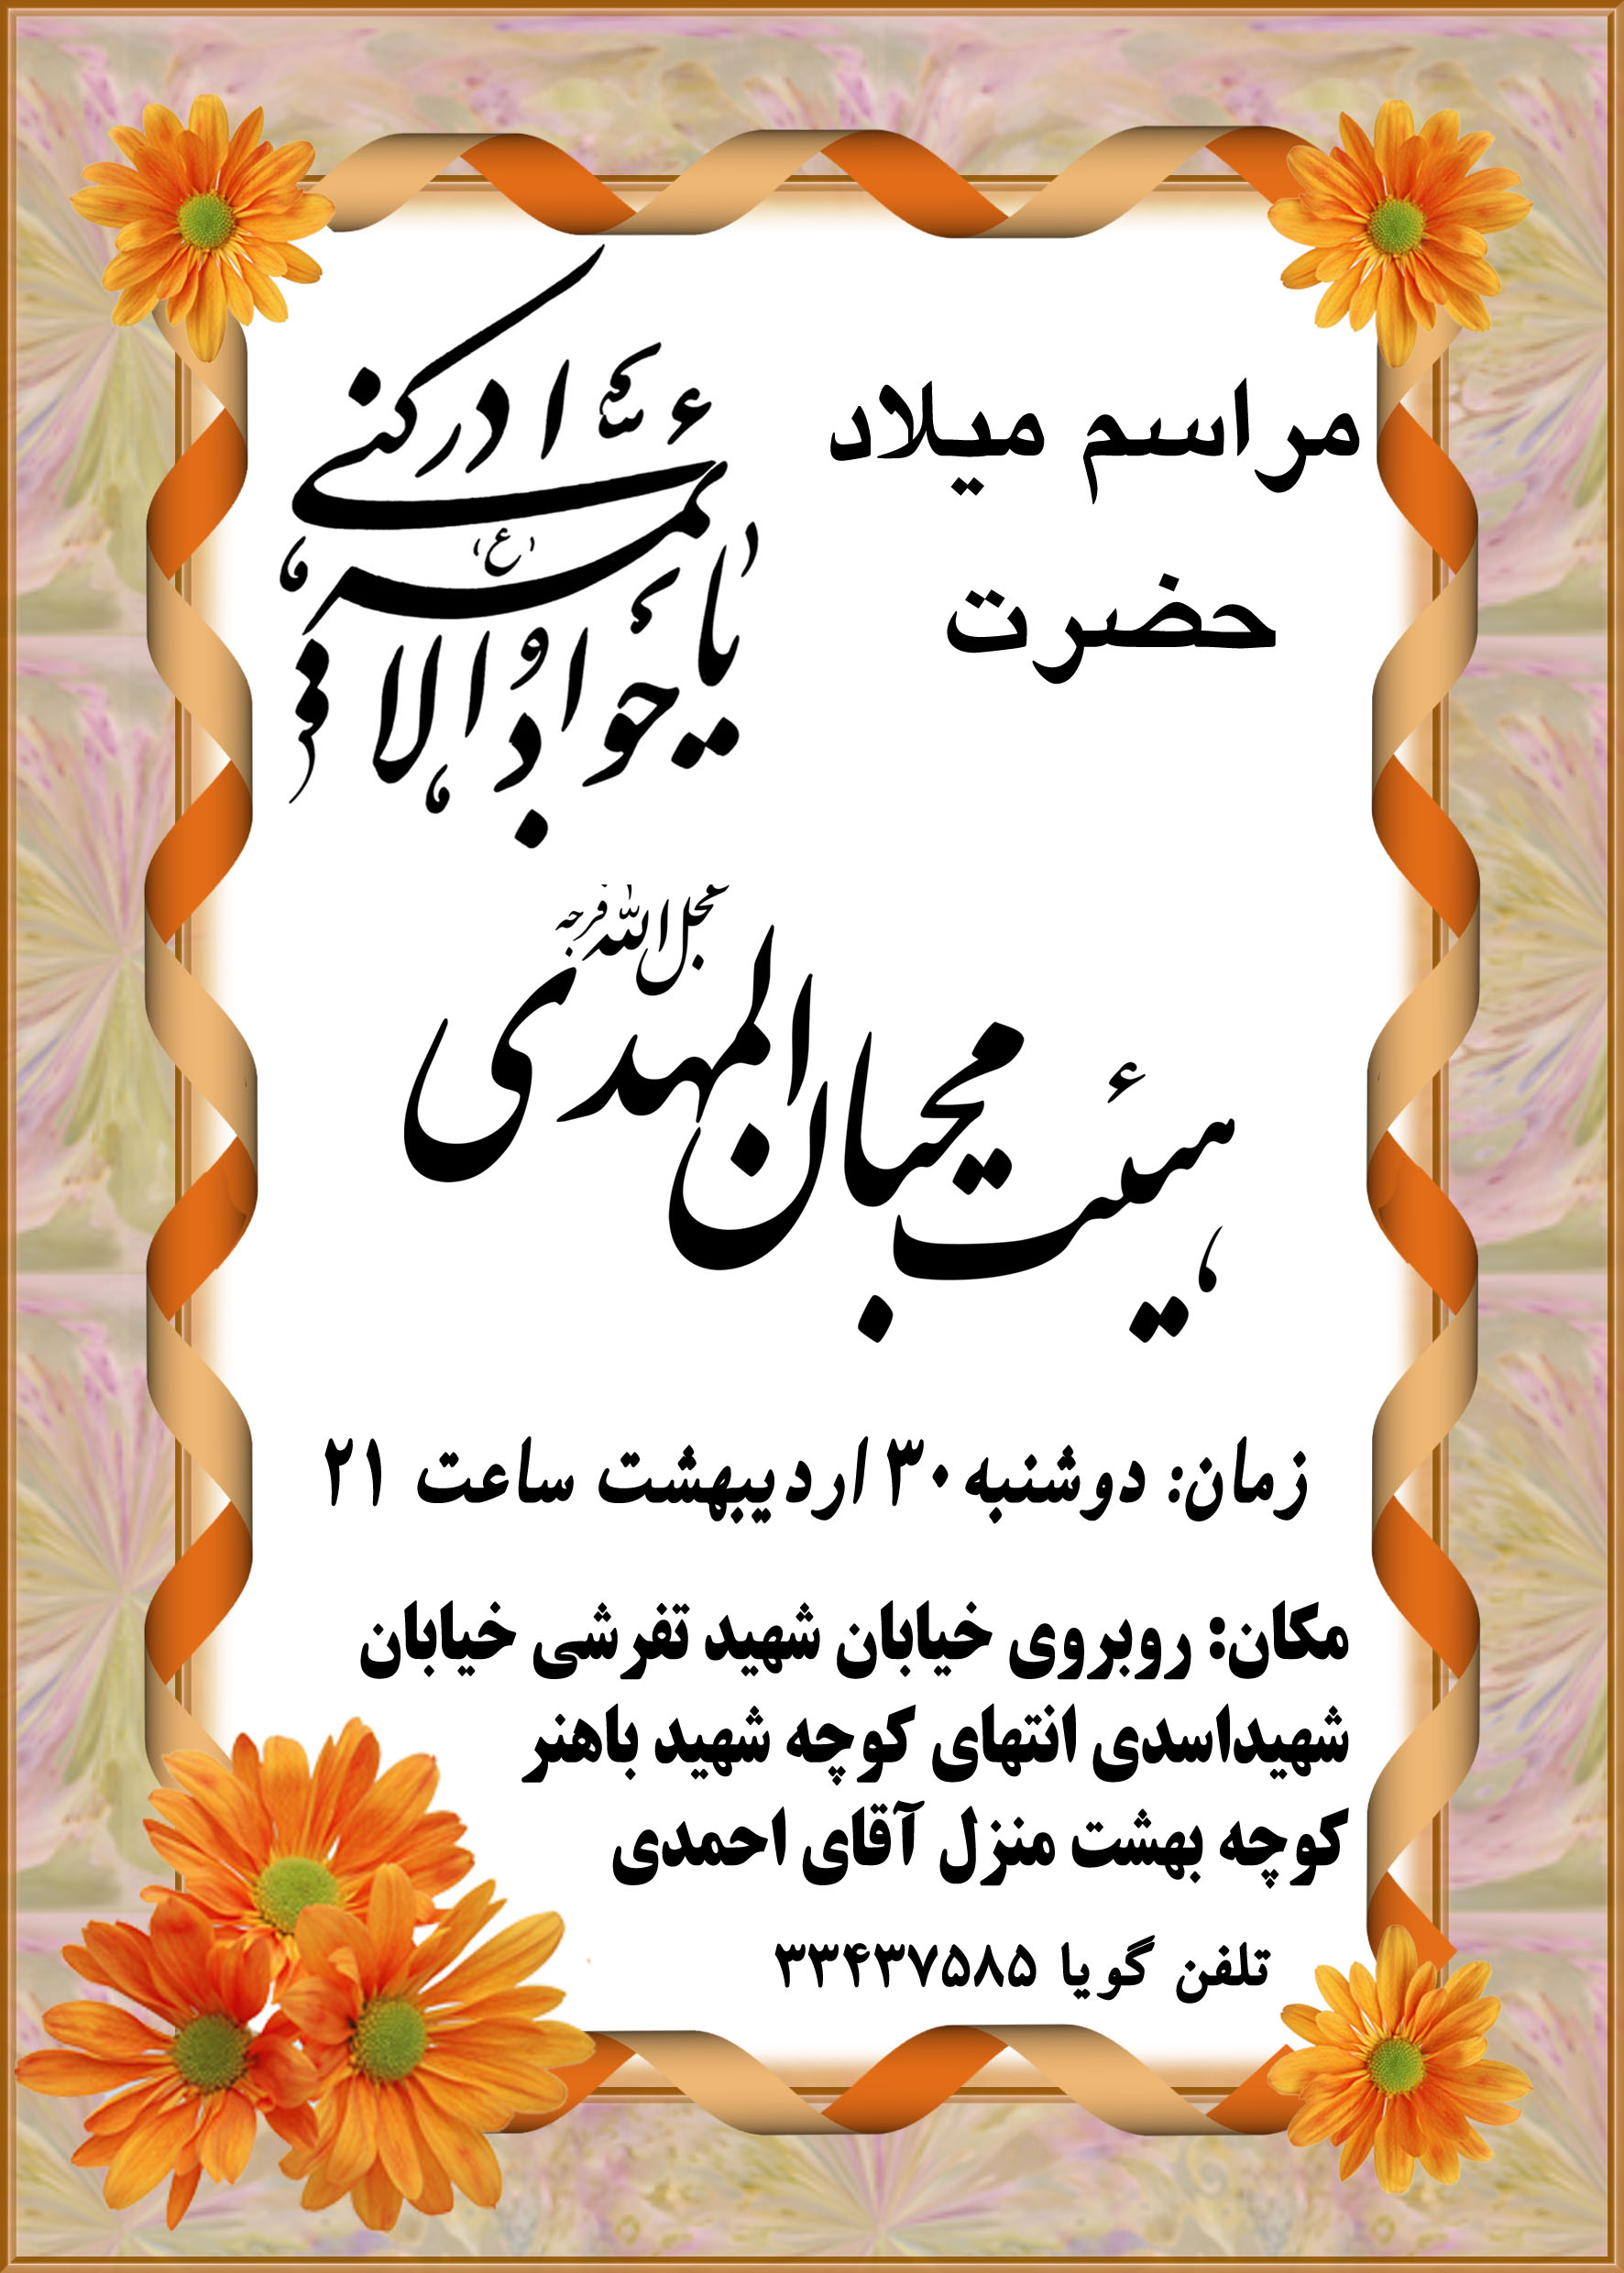 مراسم میلاد
حضرت
یا جواد الائمه (ع) ادرکنی
هیئت محبان المهدی عجل الله فرجه
زمان: دوشنبه ۳۰ اردیبهشت ساعت ۲۱
مکان: روبروی خیابان شهید تفرشی خیابان
شهیداسدی انتهای کوچه شهید باهنر
کوچه بهشت منزل آقای احمدی
تلفن گویا ۳۳۴۳۷۵۸۵